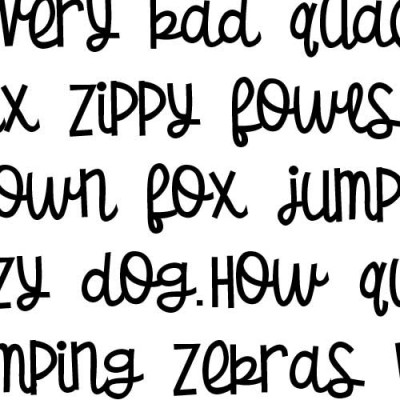 very bad quac
x zippy fowls
own fox jump
zy dog.How qu
mping zebras v